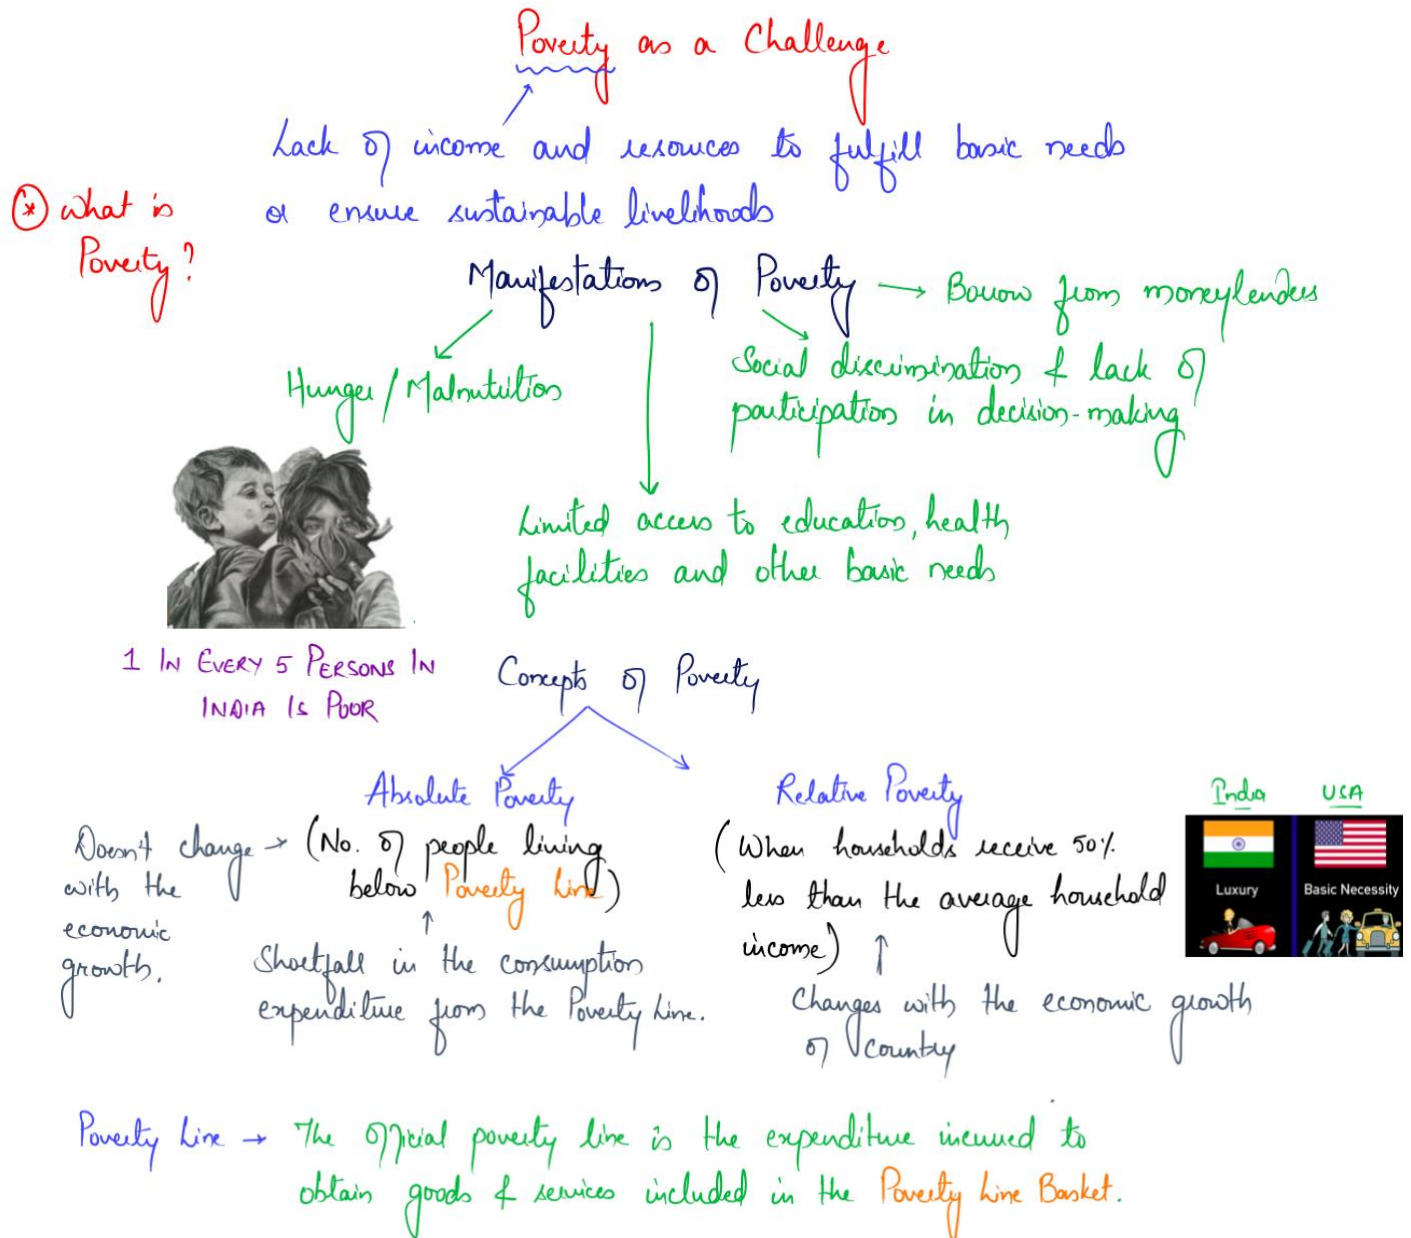 Poverty as a Challenge
Lack of income and resources to fulfill basic needs
or ensure sustainable livelihoods
* What is
Poverty?
Manifestations of Poverty → Borrow from moneylenders
Hunger/Malnutrition
Social discrimination & lack of
participation in decision-making
Limited access to education, health
facilities and other basic needs
1 IN EVERY 5 PERSONS IN
INDIA IS POOR
Concepts of Poverty
Absolute Poverty
(No. of people living
below Poverty Line)
Doesn't change →
with the
economic
growth.
Shortfall in the consumption
expenditure from the Poverty Line.
Relative Poverty
(When households receive 50%
less than the average household
income)
Changes with the economic growth
of country
India
USA
Luxury
Basic Necessity
Poverty Line → The official poverty line is the expenditure incurred to
obtain goods & services included in the Poverty Line Basket.